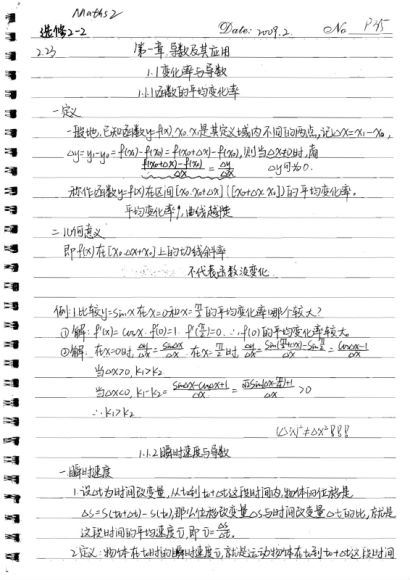 Maths2
选修2-2 Date: 2009.2. No P35
2.23 第一章 导数及其应用
1.1变化率与导数
1.1.1函数的平均变化率
一.定义
一般地,已知函数y=f(x), x₀, x₁是其定义域内不同的两点,记△x=x₁-x₀,
△y=y₁-y₀=f(x₁)-f(x₀)=f(x₀+△x)-f(x₀),则当△x≠0时,商
f(x₀+△x)-f(x₀)/△x = △y/△x △y可为0.
称作函数y=f(x)在区间[x₀,x₀+△x]([x₀+△x,x₀])的平均变化率。
平均变化率↑,曲线越陡
二.几何意义
即f(x)在[x₀,△x+x₀]上的切线斜率
不代表函数没变化
例1.比较y=sinx在x=0和x=π/2的平均变化率哪个较大?
①解: f'(x)=cosx. f'(0)=1. f'(π/2)=0. ∴f(0)的平均变化率较大。
②解: 在x=0时, △y/△x=sin△x/△x. 在x=π/2时, △y/△x=sin(π/2+△x)-sinπ/2/△x=cos△x-1/△x
当△x>0, k₁>k₂
当△x<0, k₁-k₂=sin△x-cos△x+1/△x=√2sin(△x-π/4)+1/△x>0
∴k₁>k₂
1.1.2瞬时速度与导数
一.瞬时速度
1.设△t为时间改变量,从t₀到t₀+△t这段时间内,物体的位移是
△s=s(t₀+△t)-s(t₀),那么位移改变量△s与时间改变量△t的比,就是
这段时间的平均速度v̄,即v̄=△s/△t.
2.定义:物体在t₀时的瞬时速度v,就是运动物体在t₀到t₀+△t这段时间